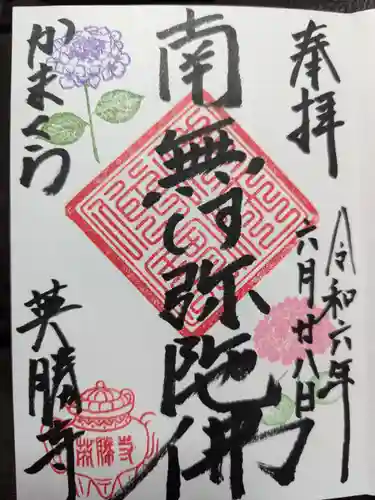 奉拝
令和六年
六月廿八日
南無阿弥陀佛
かまくら
英勝寺
英勝寺